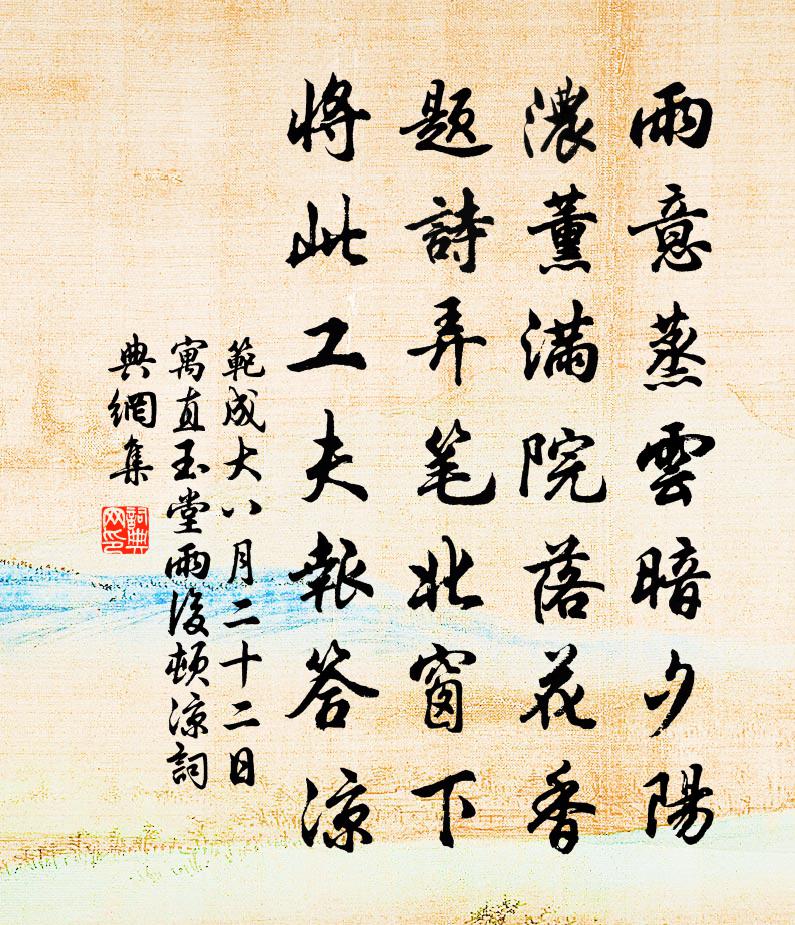 雨意蒸雲暗夕陽
濃薰滿院落花香
題詩弄笔北窗下
將此工夫報答涼
範成大八月二十二日
寓直玉堂雨後頓涼詞
典網集
詞典
网印